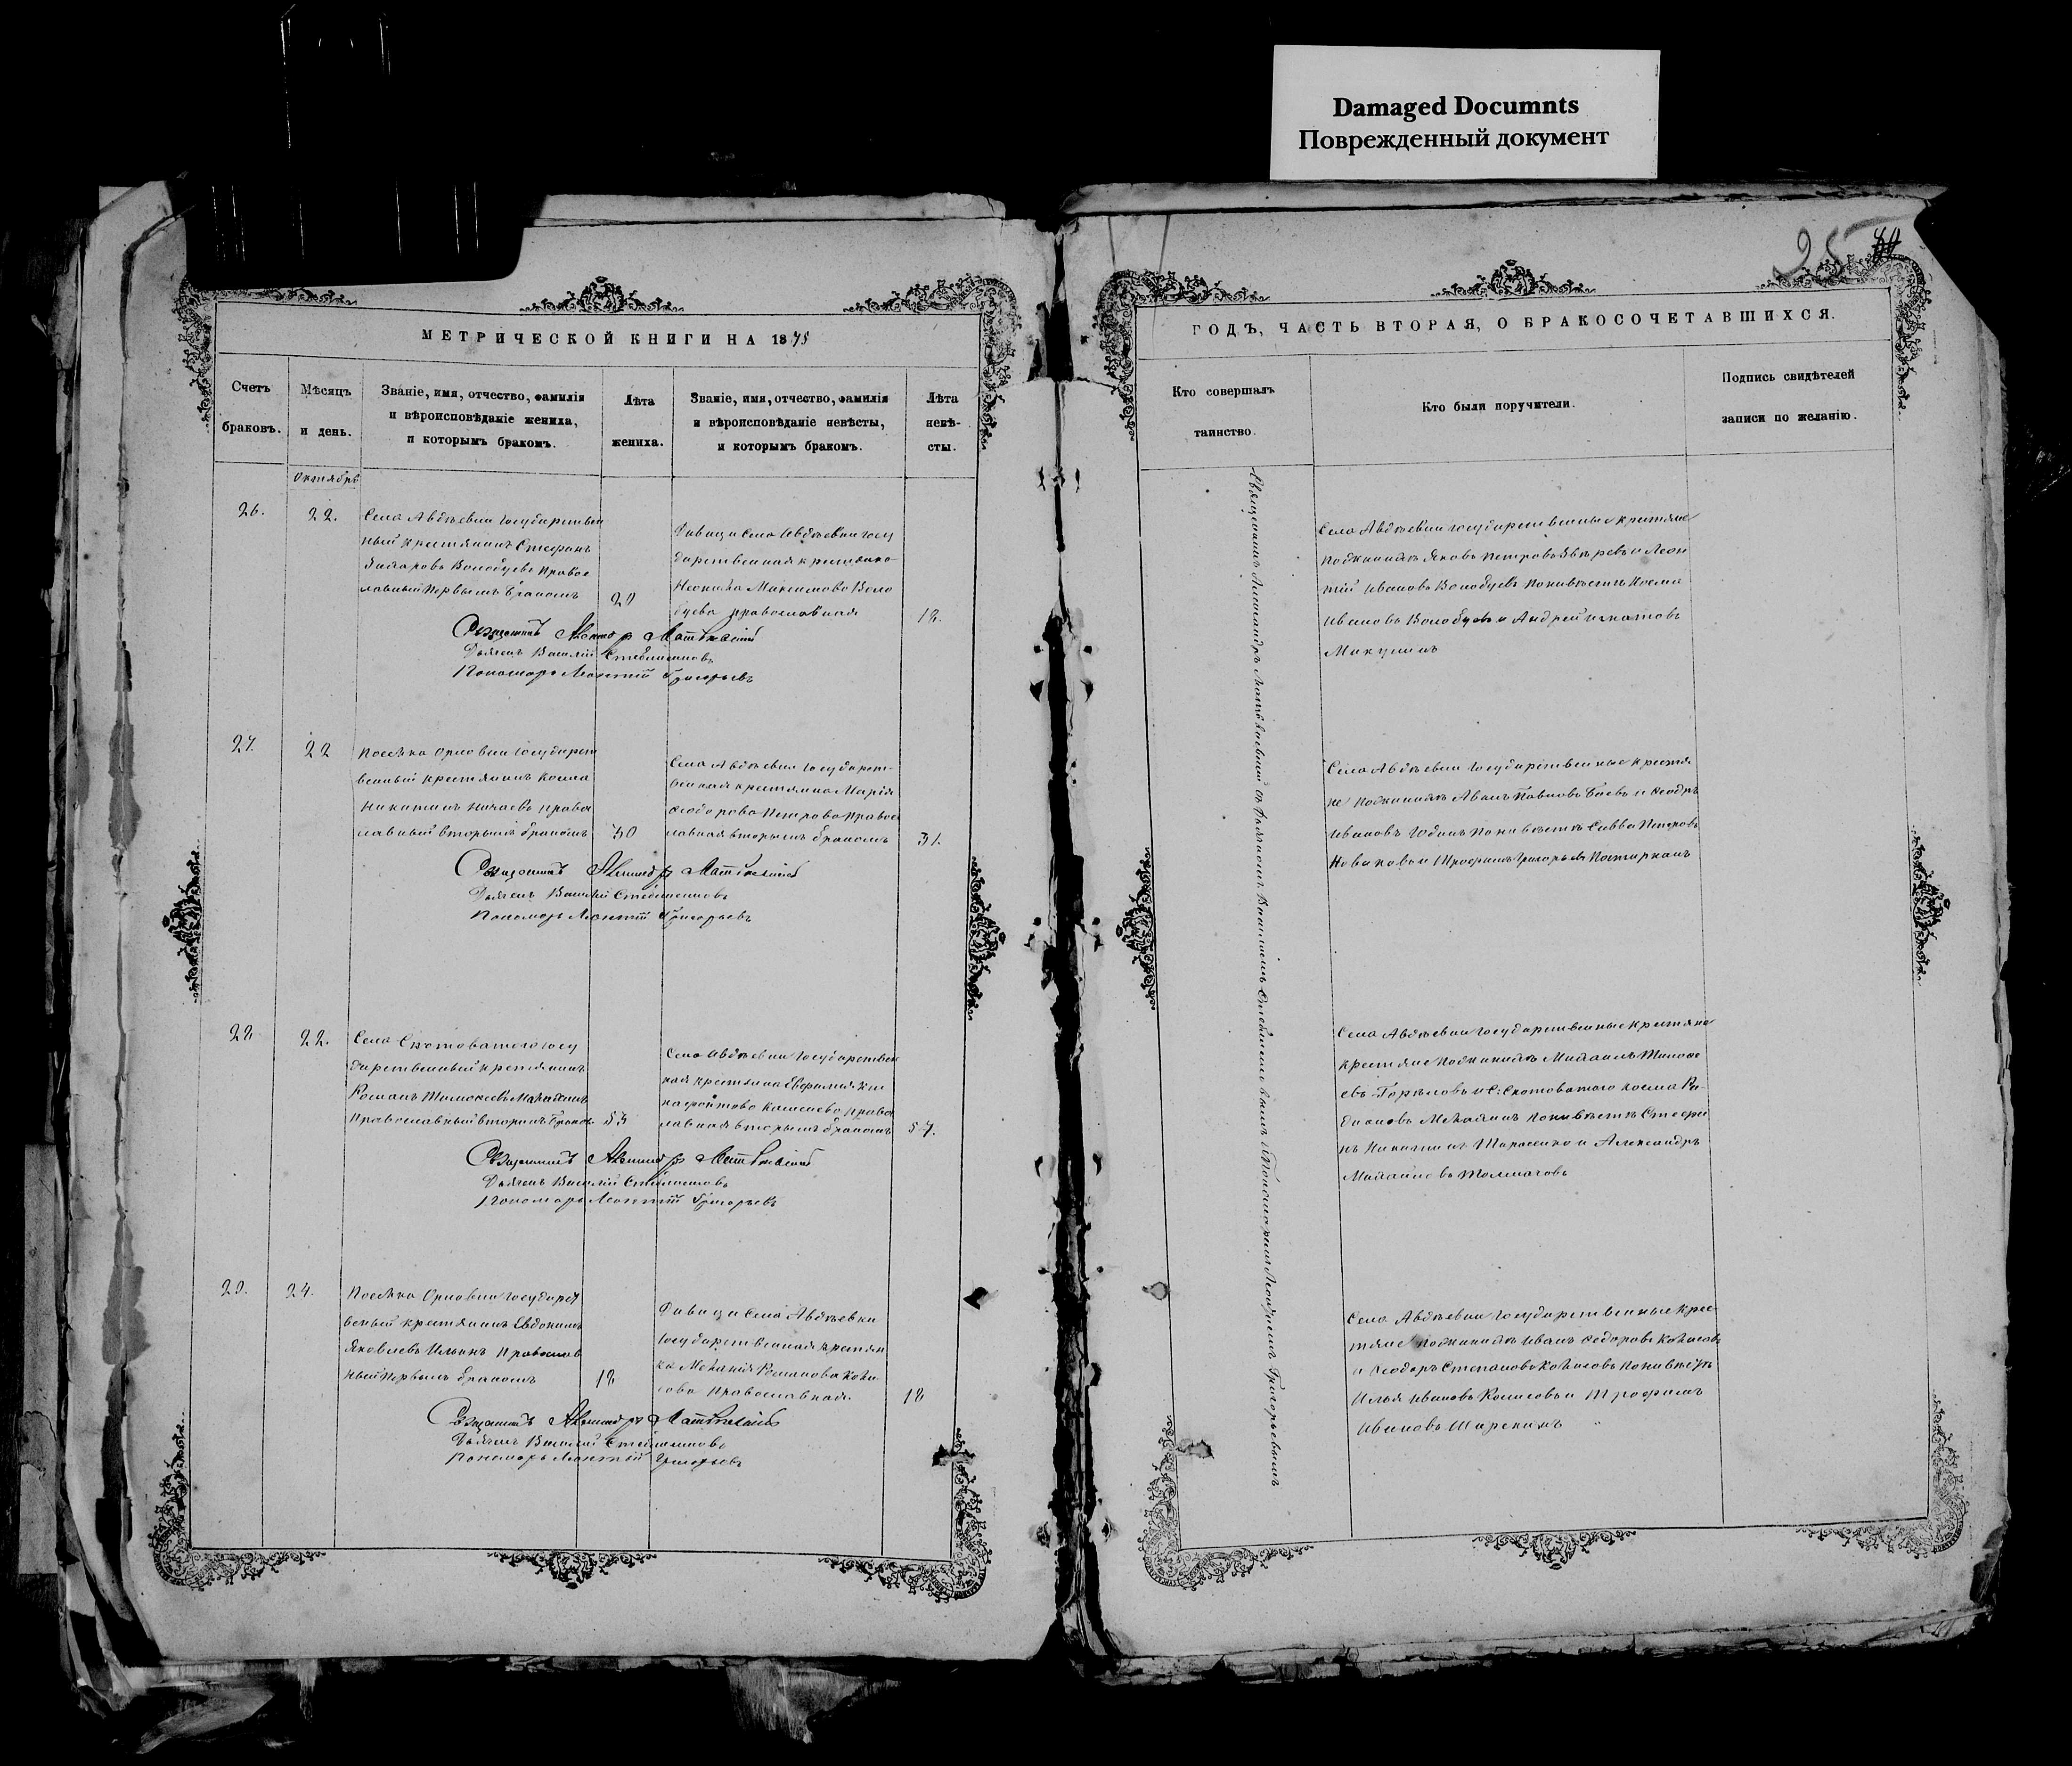 Damaged Documnts
Поврежденный документ
95 80
МЕТРИЧЕСКОЙ КНИГИ НА 1875
Счетъ браковъ.
Мѣсяцъ и день.
Званіе, имя, отчество, фамилія
и вѣроисповѣданіе жениха,
и которымъ бракомъ.
Лѣта жениха.
Званіе, имя, отчество, фамилія
и вѣроисповѣданіе невѣсты,
и которымъ бракомъ.
Лѣта невѣ-
сты.
Октябрь
26.
22.
Села Авдѣевки государствен
ный крестьянинъ Стефанъ
Волобуевъ право
славный первымъ бракомъ
20
Дѣвица села Авдѣевки госу
дарственная крестьянка
Максимова Воло
буева православная
18.
Священникъ Александръ Матвѣевскій
Дьячекъ Василій
Пономарь Леонтій Григорьевъ
27.
22
Поселка Орловки государст
венный крестьянинъ Косма
Никитинъ Нечаевъ право
славный вторымъ бракомъ
30
Села Авдѣевки государст-
венная крестьянка Марія
Ѳеодорова Петрова право
славная вторымъ бракомъ
31.
Священникъ Александръ Матвѣевскій
Дьячекъ Василій
Пономарь Леонтій Григорьевъ
28
22.
Села Скотоватаго госу
дарственный крестьянинъ
Романъ Тимоѳеевъ
Православный вторымъ браком.
53
Села Авдѣевки государствен
ная крестьянка Евфимія
право
славная вторымъ бракомъ
57.
Священникъ Александръ Матвѣевскій
Дьячекъ Василій
Пономарь Леонтій Григорьевъ
29.
24.
Поселка Орловки государст
венный крестьянинъ Евдокимъ
Яковлевъ Ильинъ православ
ный первымъ бракомъ
18
Дѣвица села Авдѣевки
государственная крестьян
ка Меланія Романова
православная.
18
Священникъ Александръ Матвѣевскій
Дьячекъ Василій
Пономарь Леонтій Григорьевъ
ГОДЪ, ЧАСТЬ ВТОРАЯ, О БРАКОСОЧЕТАВШИХСЯ.
Кто совершалъ
таинство.
Кто были поручители.
Подпись свидѣтелей
записи по желанію.
Священникъ Александръ Матвѣевскій съ дьячкомъ Василіемъ и Пономаремъ Леонтіемъ Григорьевымъ
Села Авдѣевки государственные крестьяне
по женихѣ Яковъ Петровъ Звѣревъ и Леон
тій Ивановъ Волобуевъ по невѣстѣ Косма
Ивановъ Волобуевъ и Андрей Игнатовъ
Микулинъ
Села Авдѣевки государственные крестья
не по женихѣ Иванъ Павловъ Баевъ и Ѳеодоръ
Ивановъ Юдинъ по невѣстѣ Савва Петровъ
Новаковъ и Трофимъ Григорьевъ
Села Авдѣевки государственные крестьяне
крестьяне по женихѣ Михаилъ Тимоѳе
евъ Горѣловъ и с: Скотоватого Косма
по невѣстѣ Стефа
нъ Никитинъ Тарасенко и Александръ
Михайловъ Толмачовъ
Села Авдѣевки государственные крес
тьяне по женихѣ Иванъ Ѳедоровъ
и Ѳеодоръ Степановъ по невѣстѣ
Илья Ивановъ и Трофимъ
Ивановъ